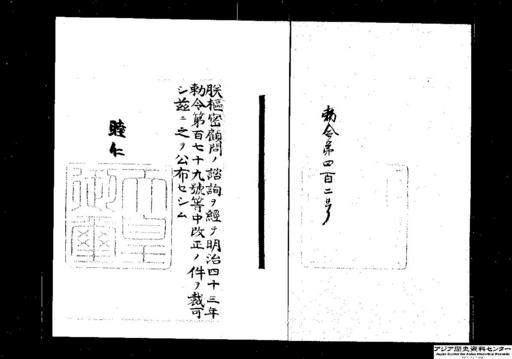 勅令第四百二号
朕樞密顧問ノ諮詢ヲ經テ明治四十三年
勅令第百七十九號等中改正ノ件ヲ裁可
シ茲ニ之ヲ公布セシム
睦仁
天皇御璽
アジア歴史資料センター
Japan Center for Asian Historical Records